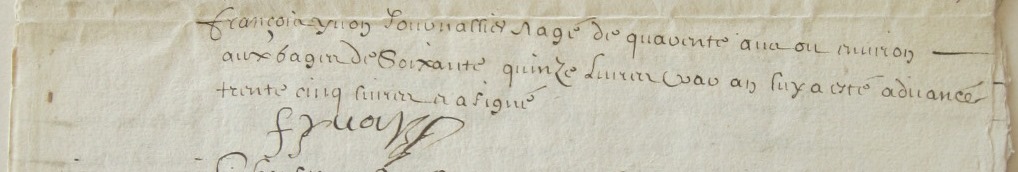 françois yuon Journallier agé de quarente ans ou environ
aux gages de Soixante quinze Livres par an luy a esté advancé
trente cinq livres et a signé
f yuon